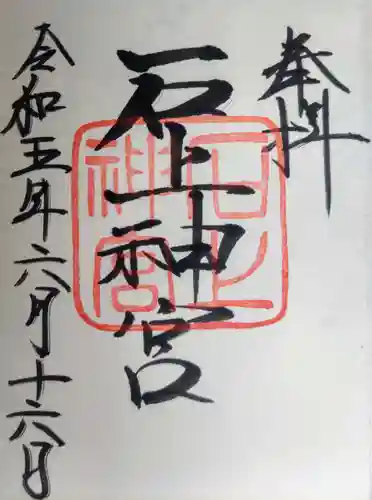 奉拝
石上神宮
石上
神宮
令和五年六月十六日